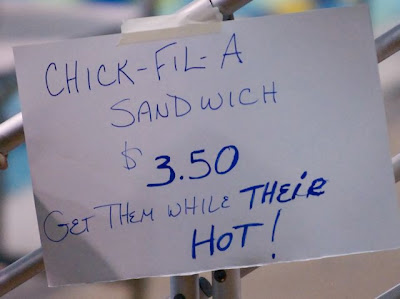 CHICK-FIL-A
SANDWICH
$3.50
GET THEM WHILE THEIR
HOT!